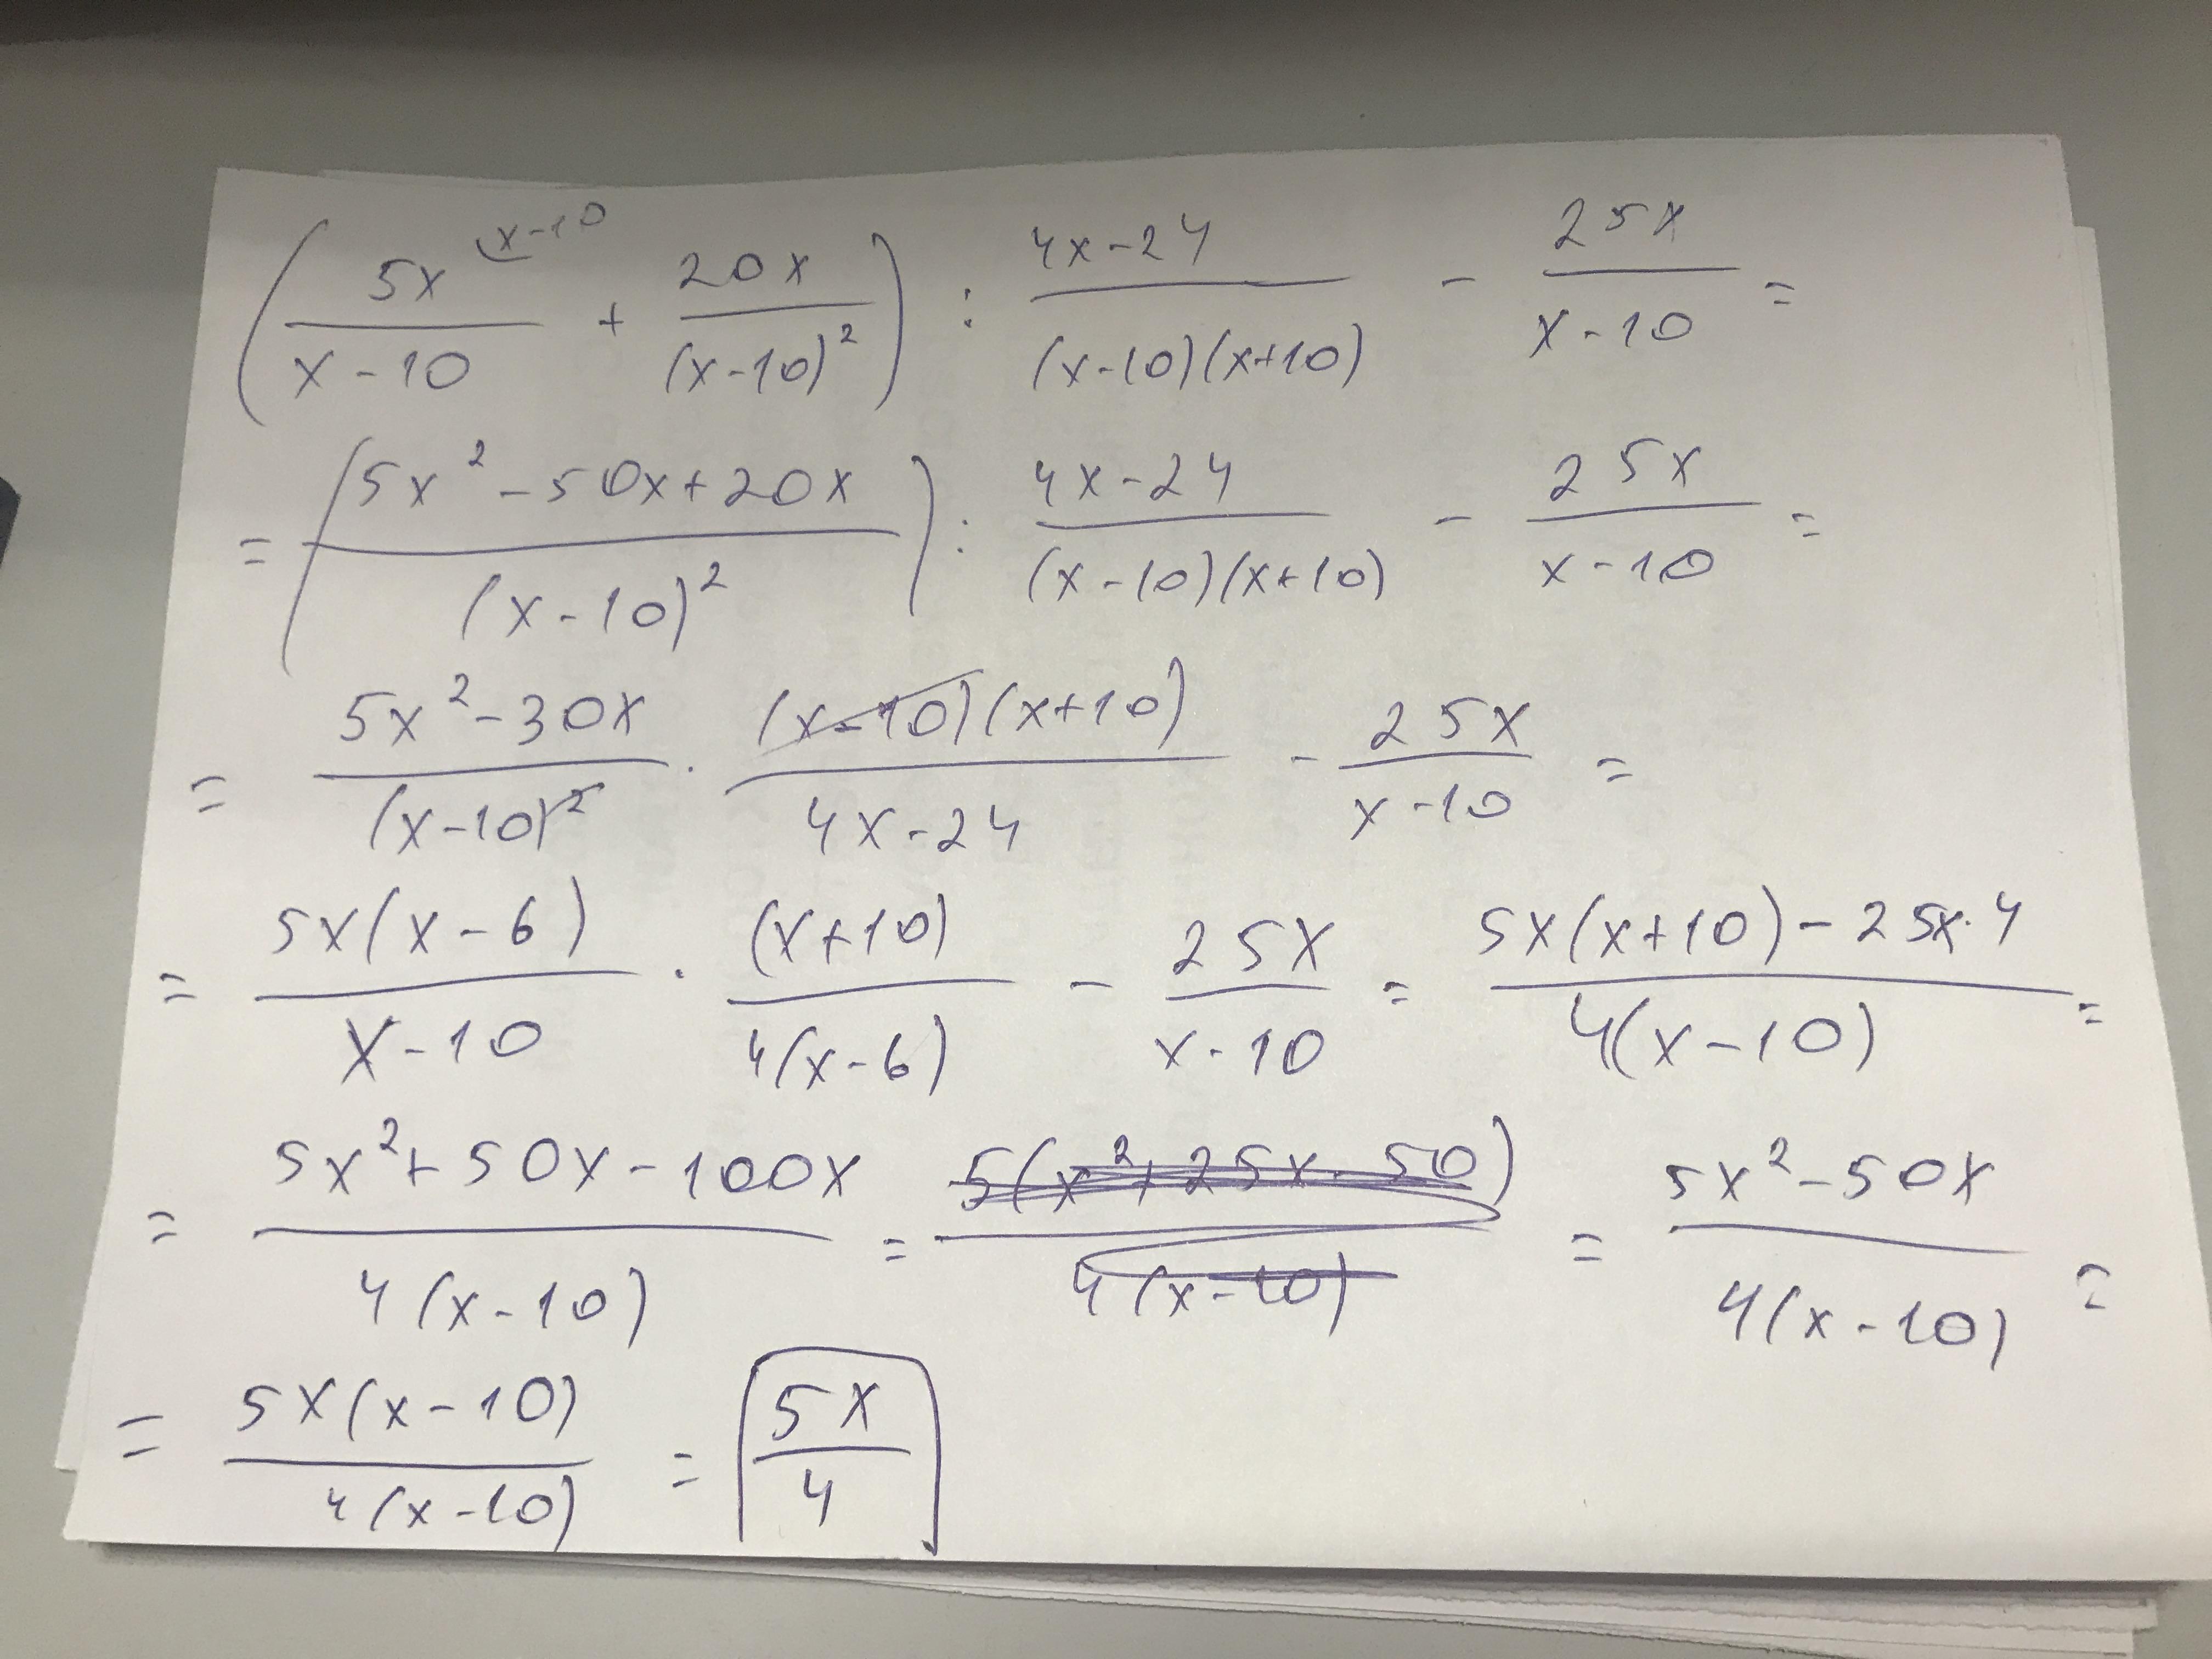 (5x/(x-10) (x-10 + 20x/(x-10)²) : (4x-24)/((x-10)(x+10)) - 25x/(x-10) =
= ((5x²-50x+20x)/(x-10)²) : (4x-24)/((x-10)(x+10)) - 25x/(x-10) =
= (5x²-30x)/(x-10)² · ((x-10)(x+10))/(4x-24) - 25x/(x-10) =
= 5x(x-6)/(x-10) · (x+10)/(4(x-6)) - 25x/(x-10) = (5x(x+10)-25x·4)/(4(x-10)) =
= (5x²+50x-100x)/(4(x-10)) = 5(x²+25x-50)/(4(x-10)) = (5x²-50x)/(4(x-10)) =
= 5x(x-10)/(4(x-10)) = 5x/4